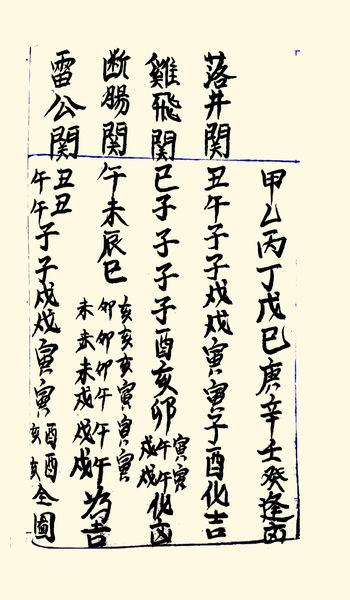 甲乙丙丁戊巳庚辛壬癸逢凶
落井関
丑午子子戍戍寅寅子酉化吉
雞飛関
巳子子子子酉亥卯
寅寅
午午
戍戍
化凶
断腸関
午未辰巳
亥亥亥寅寅寅
卯卯卯午午午
未未未戍戍戍
為吉
雷公関
丑丑
午午
子子戍戍寅寅
酉酉
亥亥
全圖